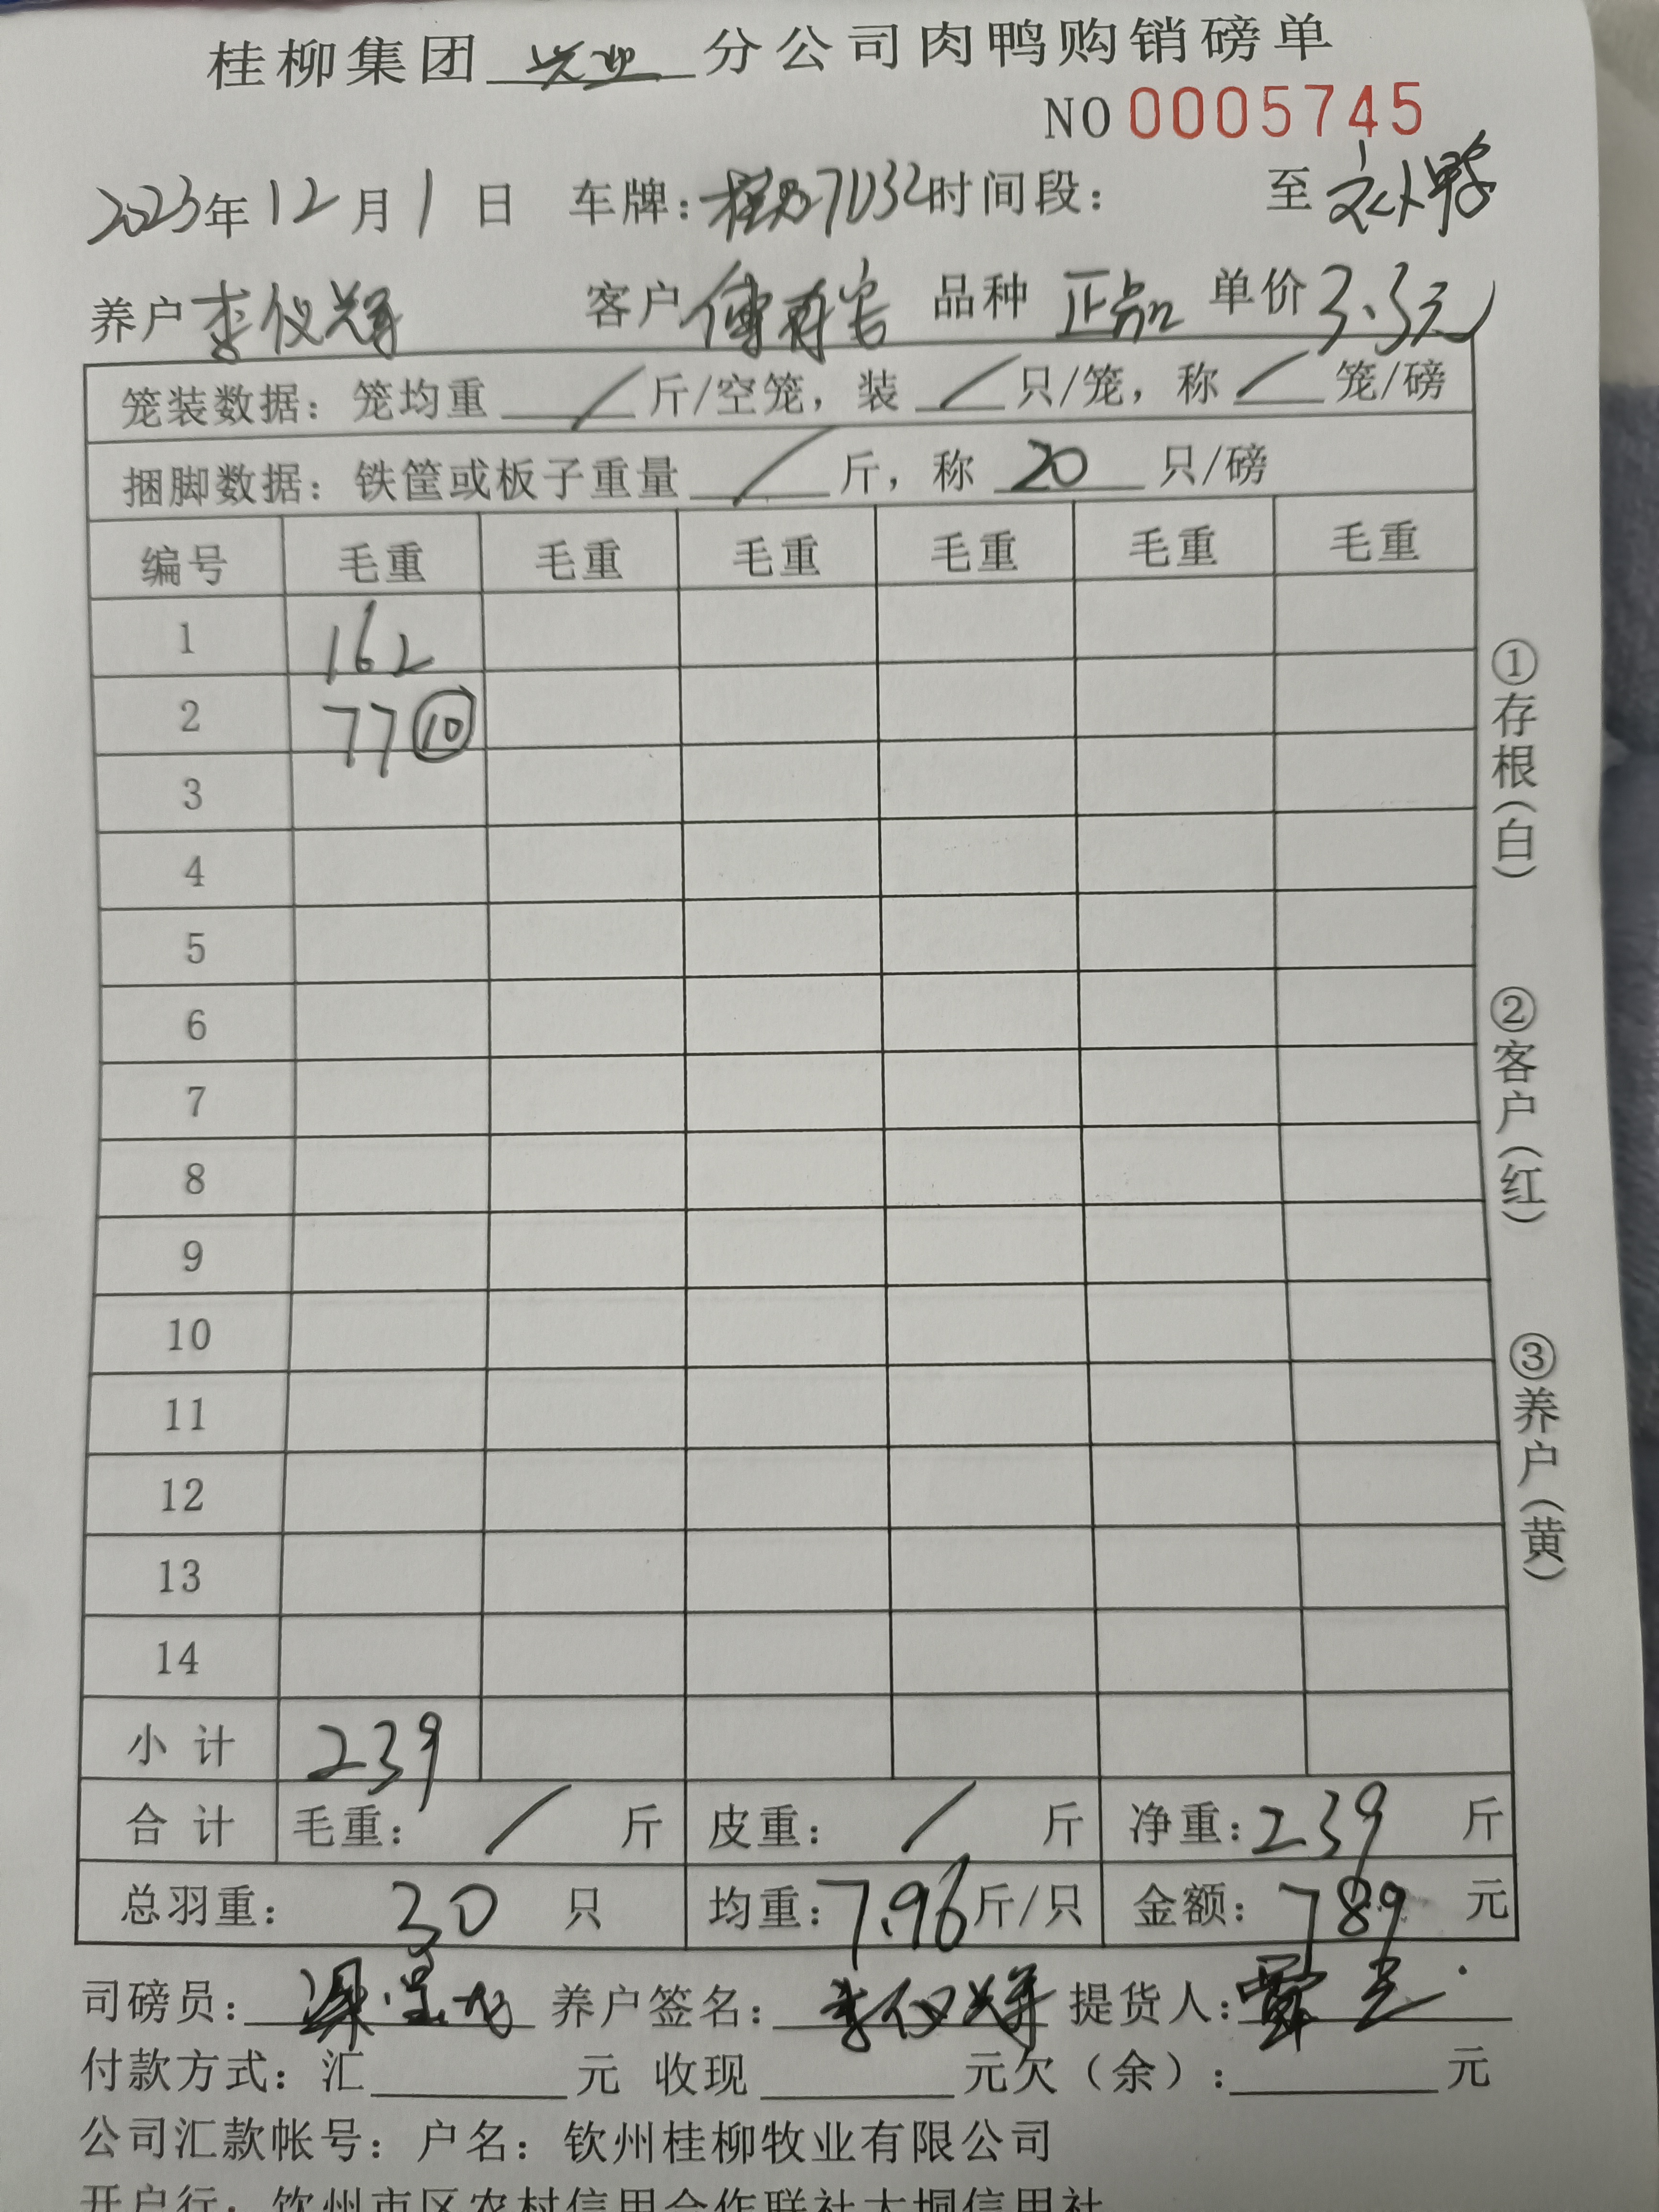 桂柳集团 兴业 分公司肉鸭购销磅单
NO 0005745
2023年12月1日 车牌: 时间段: 至
养户 李仪祥 客户 品种 正品 单价 3.3元
笼装数据: 笼均重 / 斤/空笼, 装 / 只/笼, 称 / 笼/磅
捆脚数据: 铁筐或板子重量 / 斤, 称 20 只/磅
编号 毛重 毛重 毛重 毛重 毛重 毛重
1 162
2 77 ⑩
3
4
5
6
7
8
9
10
11
12
13
14
小计 239
合计 毛重: / 斤 皮重: / 斤 净重: 239 斤
总羽重: 30 只 均重: 7.96 斤/只 金额: 789 元
司磅员: 养户签名: 李仪祥 提货人:
付款方式: 汇 元 收现 元欠(余): 元
公司汇款帐号: 户名: 钦州桂柳牧业有限公司
开户行: 钦州市区农村信用合作联社大垌信用社
①存根(白)
②客户(红)
③养户(黄)